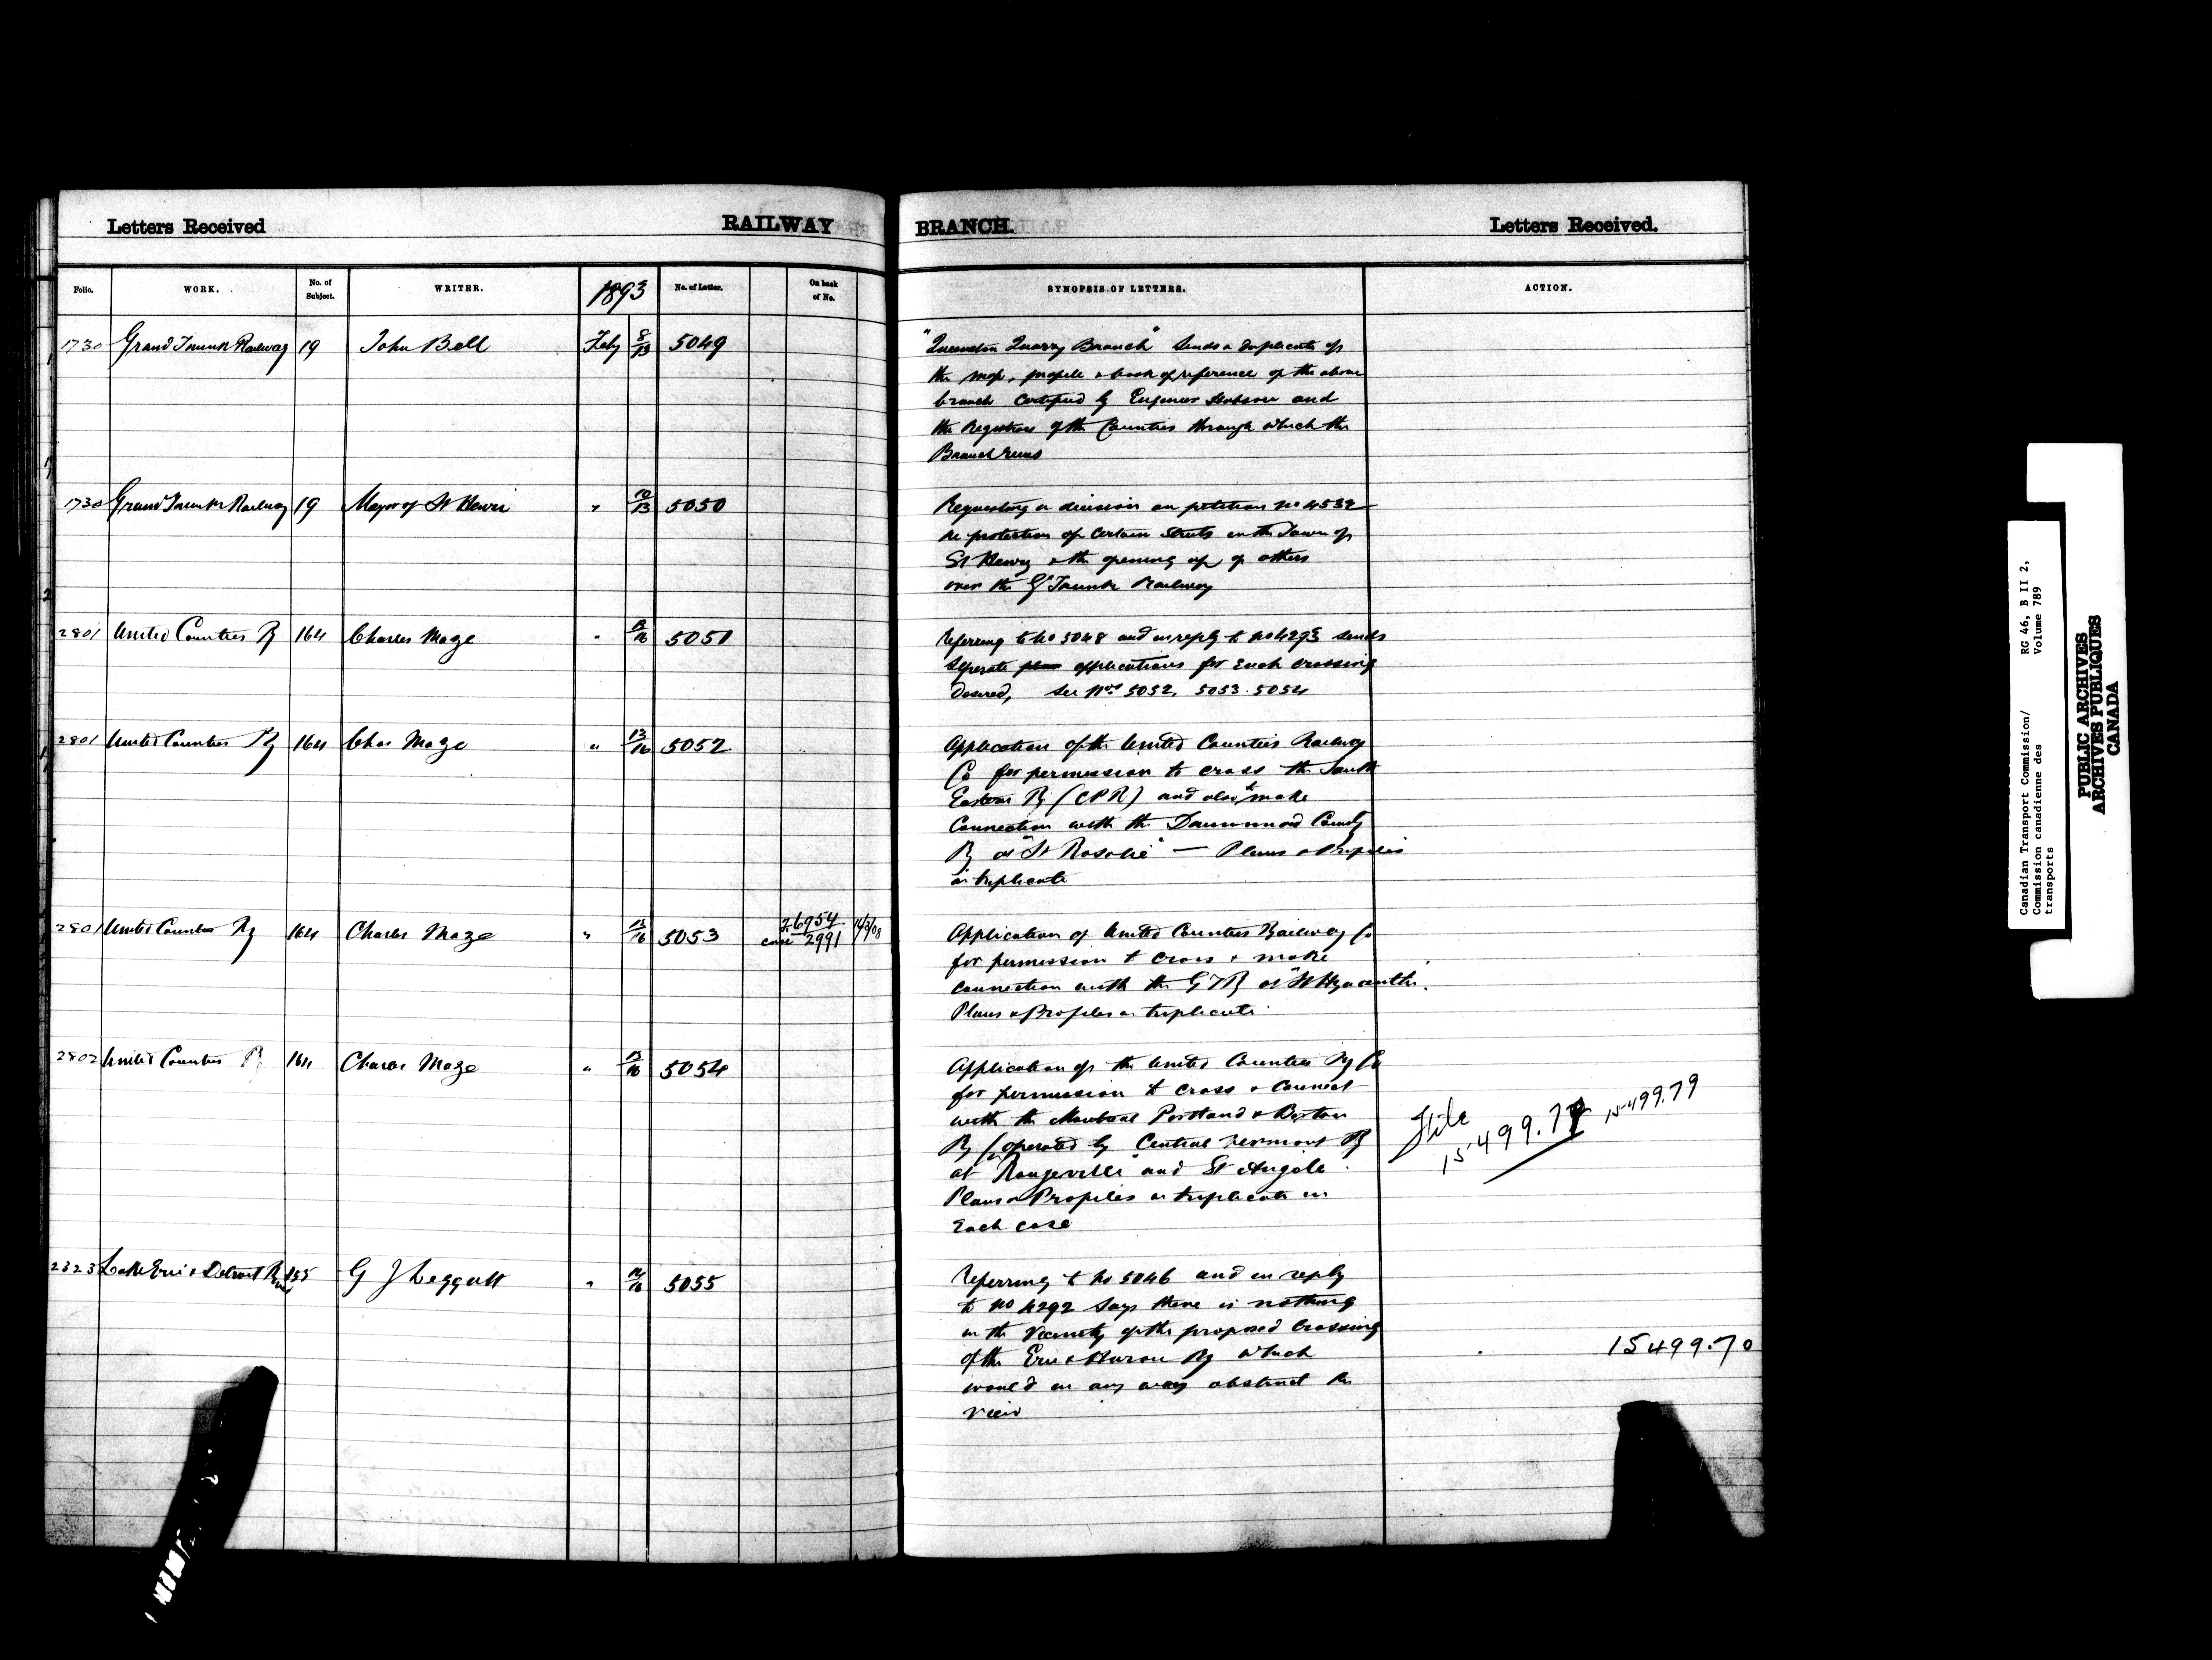 Letters Received RAILWAY BRANCH. Letters Received.
Folio. WORK. No. of Subject. WRITER. 1893 No. of Letter. On back of No. SYNOPSIS OF LETTERS. ACTION.
1730 Grand Trunk Railway 19 John Bell Feby 8/13 5049
"Queenston Quarry Branch" Sends a duplicate of
the map, profile & book of reference of the above
branch Certified by Engineer Hobson and
the Registrars of the Counties through which the
Branch runs
1730 Grand Trunk Railway 19 Mayor of St Henri " 10/13 5050
Requesting a decision on petition No 4532
re protection of Certain Streets in the Town of
St Henry & the opening up of others
over the Gd Trunk Railway
2801 United Counties Ry 164 Charles Maze " 13/16 5051
Referring to No 5048 and in reply to No 4293 sends
Seperate plans applications for Each Crossing
Desired, See Nos 5052, 5053. 5054
2801 United Counties Ry 164 Chas Maze " 13/16 5052
Application of the United Counties Railway
Co for permission to cross the South
Eastern Ry (CPR) and also to make
Connection with the Drummond County
Ry at "St Rosalie" — Plans & Profiles
in triplicate
2801 United Counties Ry 164 Charles Maze " 13/16 5053 26954 case 2991
Application of United Counties Railway Co
for permission to cross & make
Connection with the GTR at "St Hyacinthe.
Plans & Profiles in triplicate
2802 United Counties Ry 164 Charles Maze " 13/16 5054
Application of the United Counties Ry Co
for permission to Cross & Connect
with the Montreal Portland & Boston
Ry (operated by Central Vermont Ry
at Rougeville and St Angèle.
Plans & Profiles in triplicate in
Each case
File 15499.79 15499.79
2323 Lake Erie & Detroit River 155 G J Leggatt " 14/16 5055
Referring to No 5046 and in reply
to No 4292 Says there is nothing
in the Vicinity of the proposed Crossing
of the Erie & Huron Ry which
would in any way obstruct the
view
15499.70
Canadian Transport Commission/ RG 46, B II 2,
Commission canadienne des Volume 789
transports
PUBLIC ARCHIVES
ARCHIVES PUBLIQUES
CANADA